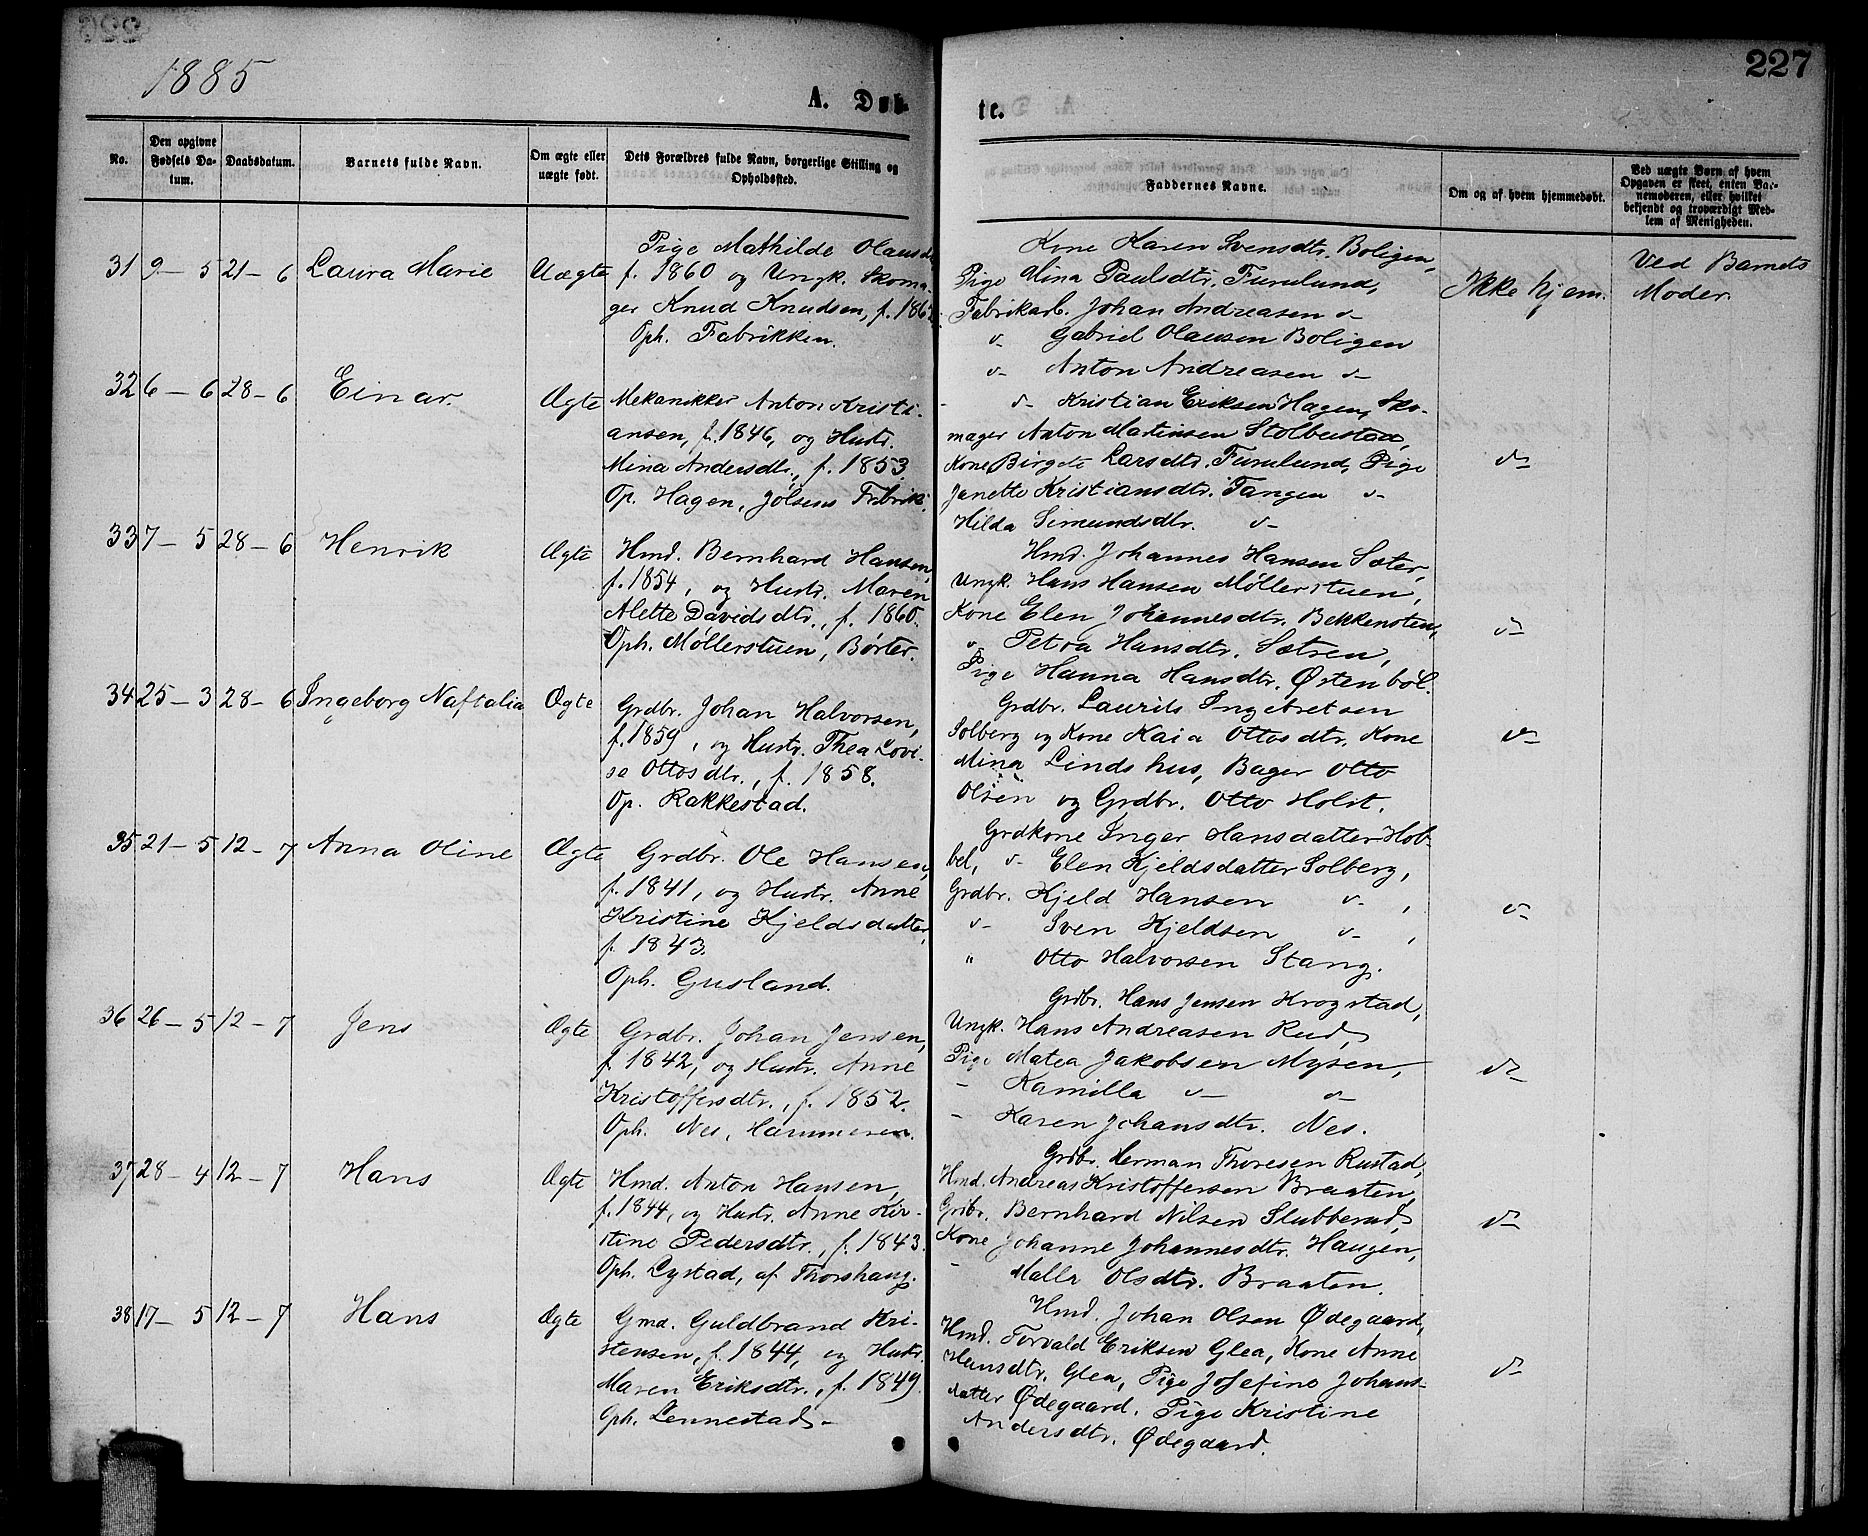 1885
227
A. Døb-
te.
No.
Den opgivne Fødsels Da-tum.
Daabsdatum.
Barnets fulde Navn.
Om ægte eller uægte født.
Dets Forældres fulde Navn, borgerlige Stilling og Opholdssted.
Faddernes Navne.
Om og af hvem hjemmedøbt.
Ved uægte Børn af hvem Opgaven er skeet, enten Bar-nemoderen, eller hvilket bekjendt og troværdigt Med-lem af Menigheden.
31 9 - 5 21 - 6 Laura Marie Uægte
Pige Mathilde Olausdt.
f. 1860 og Ungk. Skoma-
ger Knud Knudsen, f. 186
Oph. Fabrikken.
Kone Karen Svensdtr. Boligen,
Pige Mina Paulsdtr. Furulund,
Fabrikarb. Johan Andreasen v-
v- Gabriel Olausen Boligen
v- Anton Andreasen v-
Ikke hjem.
Ved Barnets
Moder.
32 6 - 6 28 - 6 Einar. Ægte
Mekanikker Anton Kristi-
ansen, f. 1846, og Hustr.
Mina Andersdtr., f. 1853
Op. Hagen, Jølsens Fabrik.
- v- Kristian Eriksen Hagen, Sko-
mager Anton Martinsen Stolbustad,
Kone Birgete Larsdtr. Furulund, Pige
Janette Kristiansdtr. Tangen v-
Hilda Simundsdtr. v-
v-
33 7 - 5 28 - 6 Henrik Ægte
Hmd. Bernhard Hansen,
f. 1854, og Hustr. Maren
Alette Davidsdtr., f. 1860.
Oph. Møllerstuen, Børter.
Hmd. Johannes Hansen Sæter,
Ungk. Hans Hansen Møllerstuen,
Kone Elen Johannesdtr. Bekkensten,
v- Petra Hansdtr. Sætren,
Pige Hanna Hansdtr. Østenbøl.
v-
34 25 - 3 28 - 6 Ingeborg Naftalia Ægte
Grdbr. Johan Halvorsen,
f. 1859, og Hustr. Thea Lovi-
se Ottosdtr., f. 1858.
Op. Rakkestad.
Grdbr. Laurits Ingebretsen
Solberg og Kone Kaia Ottosdtr. Kone
Mina Lindshus, Bager Otto
Olsen og Grdbr. Otto Holst.
v-
35 21 - 5 12 - 7 Anna Oline Ægte
Grdbr. Ole Hansen,
f. 1841, og Hustr. Anne
Kristine Kjeldsdatter,
f. 1843.
Oph. Gusland.
Grdkone Inger Hansdatter Hob-
bel, v- Elen Kjeldsdatter Solberg,
Grdbr. Kjeld Hansen v-,
v- Sven Kjeldsen v-,
" Otto Halvorsen Stang.
v-
36 26 - 5 12 - 7 Jens Ægte
Grdbr. Johan Jensen,
f. 1842, og Hustr. Anne
Kristoffersdtr., f. 1852.
Oph. Nes, Hammeren.
Grdbr. Hans Jensen Krogstad,
Ungk. Hans Andreasen Rud,
Pige Matea Jakobsen Mysen,
- Kamilla v- v-
- Karen Johansdtr. Nes.
v-
37 28 - 4 12 - 7 Hans Ægte
Hmd. Anton Hansen,
f. 1844, og Hustr. Anne Kir-
stine Pedersdtr., f. 1843.
Oph. Lystad, af Thorshaug.
Grdbr. Herman Thoresen Rustad,
Hmd. Andreas Kristoffersen Braaten,
Grdbr. Bernhard Nilsen Slubberud,
Kone Johanne Johannesdtr. Haugen,
- Malla Olsdtr. Braaten.
v-
38 17 - 5 12 - 7 Hans Ægte
Gmd. Guldbrand Kri-
stensen, f. 1844, og Hustr.
Maren Eriksdtr., f. 1849.
Oph. Lennestad -
Hmd. Johan Olsen Ødegaard,
Hmd. Torvald Eriksen Glea, Kone Anne
Hansdtr. Glea, Pige Josefine Johans-
datter Ødegaard. Pige Kristine
Andersdtr. Ødegaard.
v-